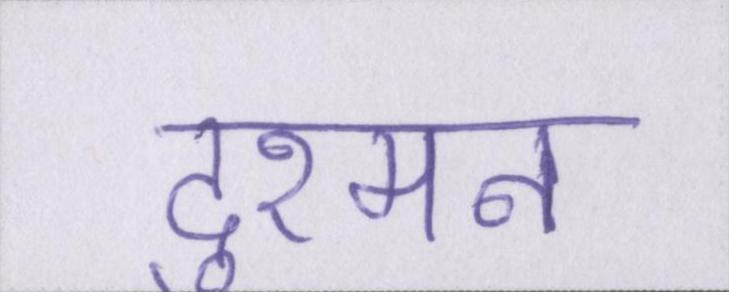 दुश्मन